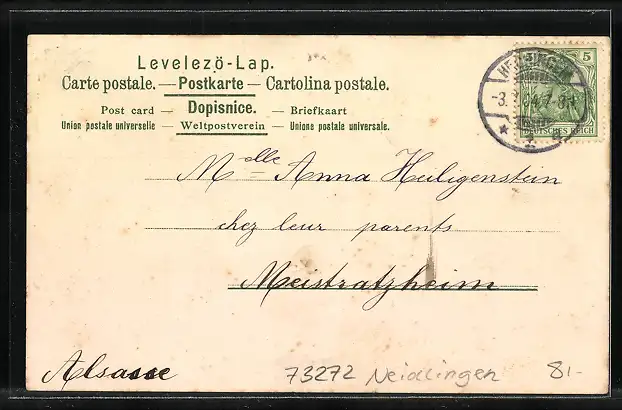 Levelező-Lap.
Carte postale. — Postkarte — Cartolina postale.
Post card — Dopisnice. — Briefkaart
Union postale universelle — Weltpostverein — Unione postale universale.
5
DEUTSCHES REICH
Melle Anna Heiligenstein
chez leur parents
Meistratzheim
Alsasce
73272 Neidlingen
8.-